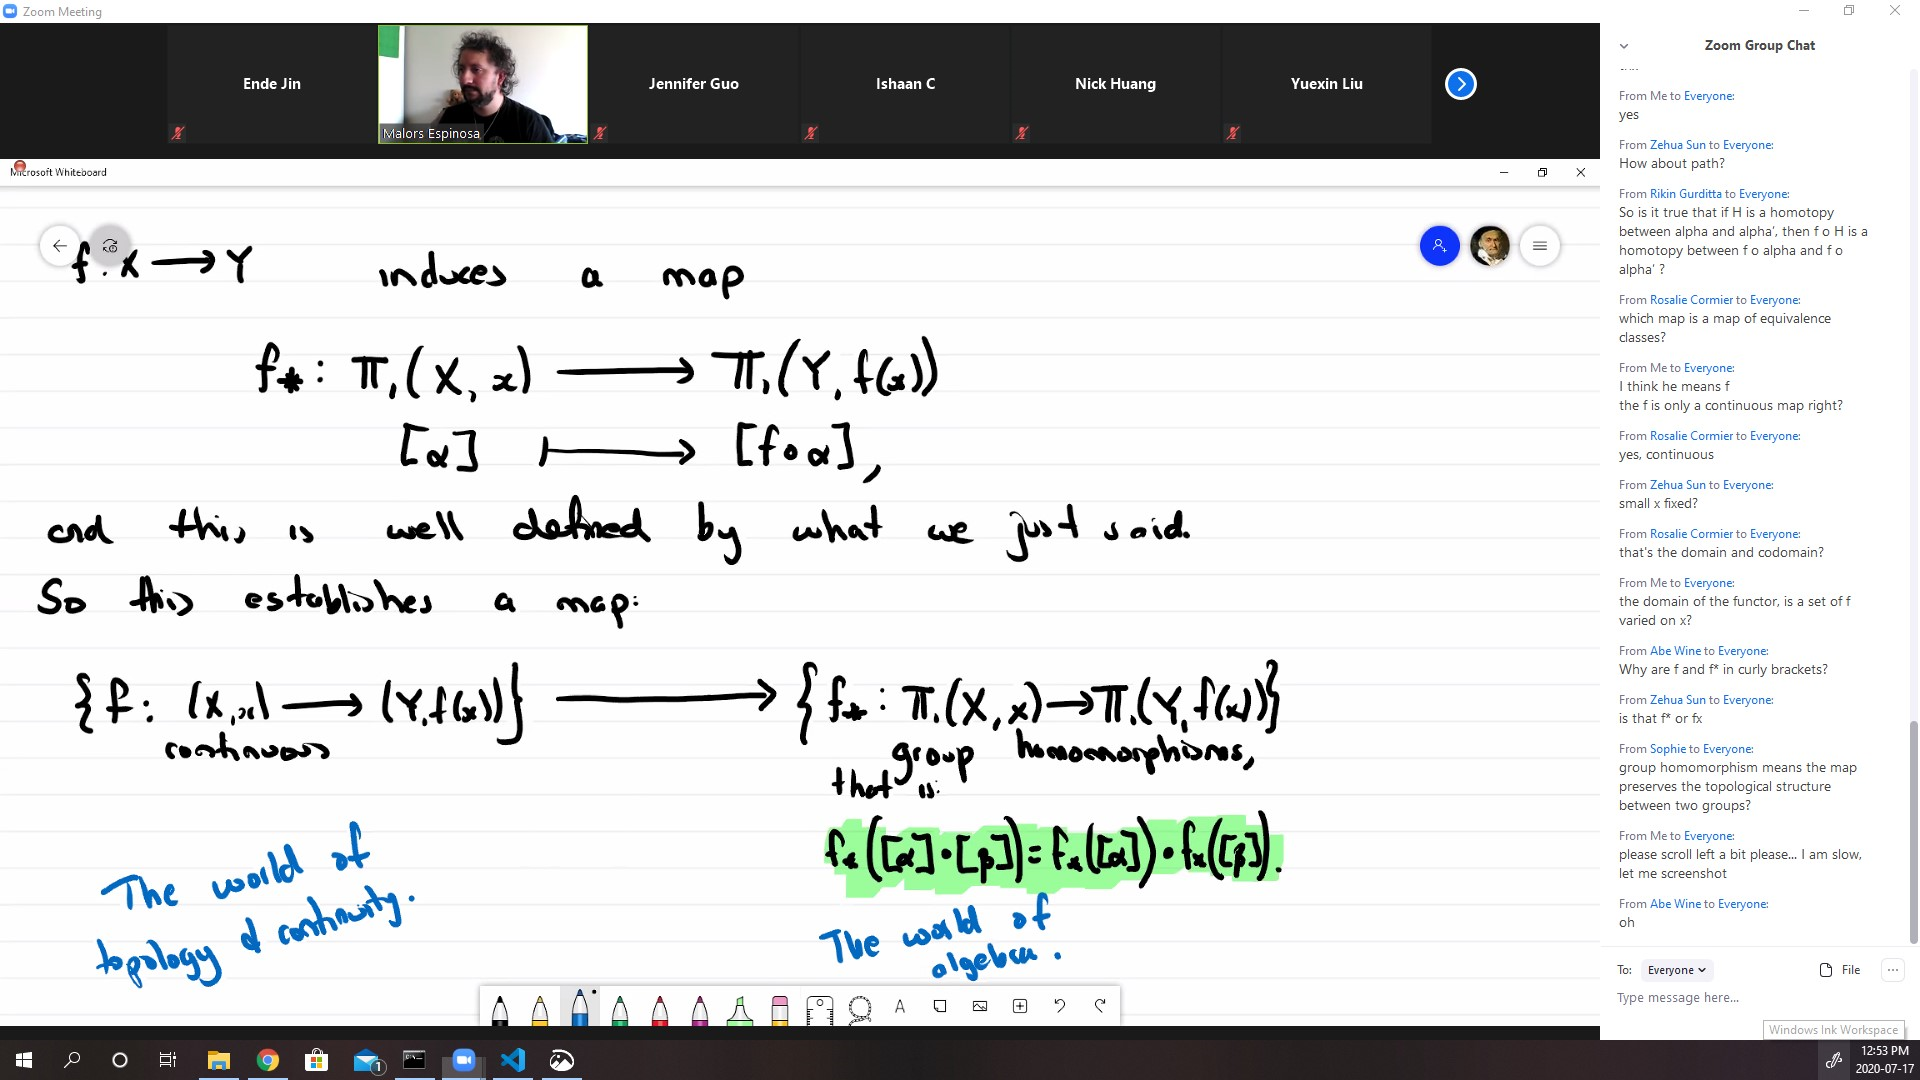 Zoom Meeting
Ende Jin
Malors Espinosa
Jennifer Guo
Ishaan C
Nick Huang
Yuexin Liu
Microsoft Whiteboard
f: X → Y induces a map
f* : π₁(X, x) → π₁(Y, f(x))
[α] ↦ [f∘α],
and this is well defined by what we just said.
So this establishes a map:
{f: (X,x) → (Y,f(x))} → {f* : π₁(X,x) → π₁(Y,f(x))}
continuous
group homomorphisms,
that is:
f*([α]•[β]) = f*([α])•f*([β]).
The world of
topology & continuity.
The world of
algebra.
Zoom Group Chat
From Me to Everyone:
yes
From Zehua Sun to Everyone:
How about path?
From Rikin Gurditta to Everyone:
So is it true that if H is a homotopy
between alpha and alpha’, then f o H is a
homotopy between f o alpha and f o
alpha’ ?
From Rosalie Cormier to Everyone:
which map is a map of equivalence
classes?
From Me to Everyone:
I think he means f
the f is only a continuous map right?
From Rosalie Cormier to Everyone:
yes, continuous
From Zehua Sun to Everyone:
small x fixed?
From Rosalie Cormier to Everyone:
that's the domain and codomain?
From Me to Everyone:
the domain of the functor, is a set of f
varied on x?
From Abe Wine to Everyone:
Why are f and f* in curly brackets?
From Zehua Sun to Everyone:
is that f* or fx
From Sophie to Everyone:
group homomorphism means the map
preserves the topological structure
between two groups?
From Me to Everyone:
please scroll left a bit please... I am slow,
let me screenshot
From Abe Wine to Everyone:
oh
To: Everyone File
Type message here...
Windows Ink Workspace
1
12:53 PM
2020-07-17